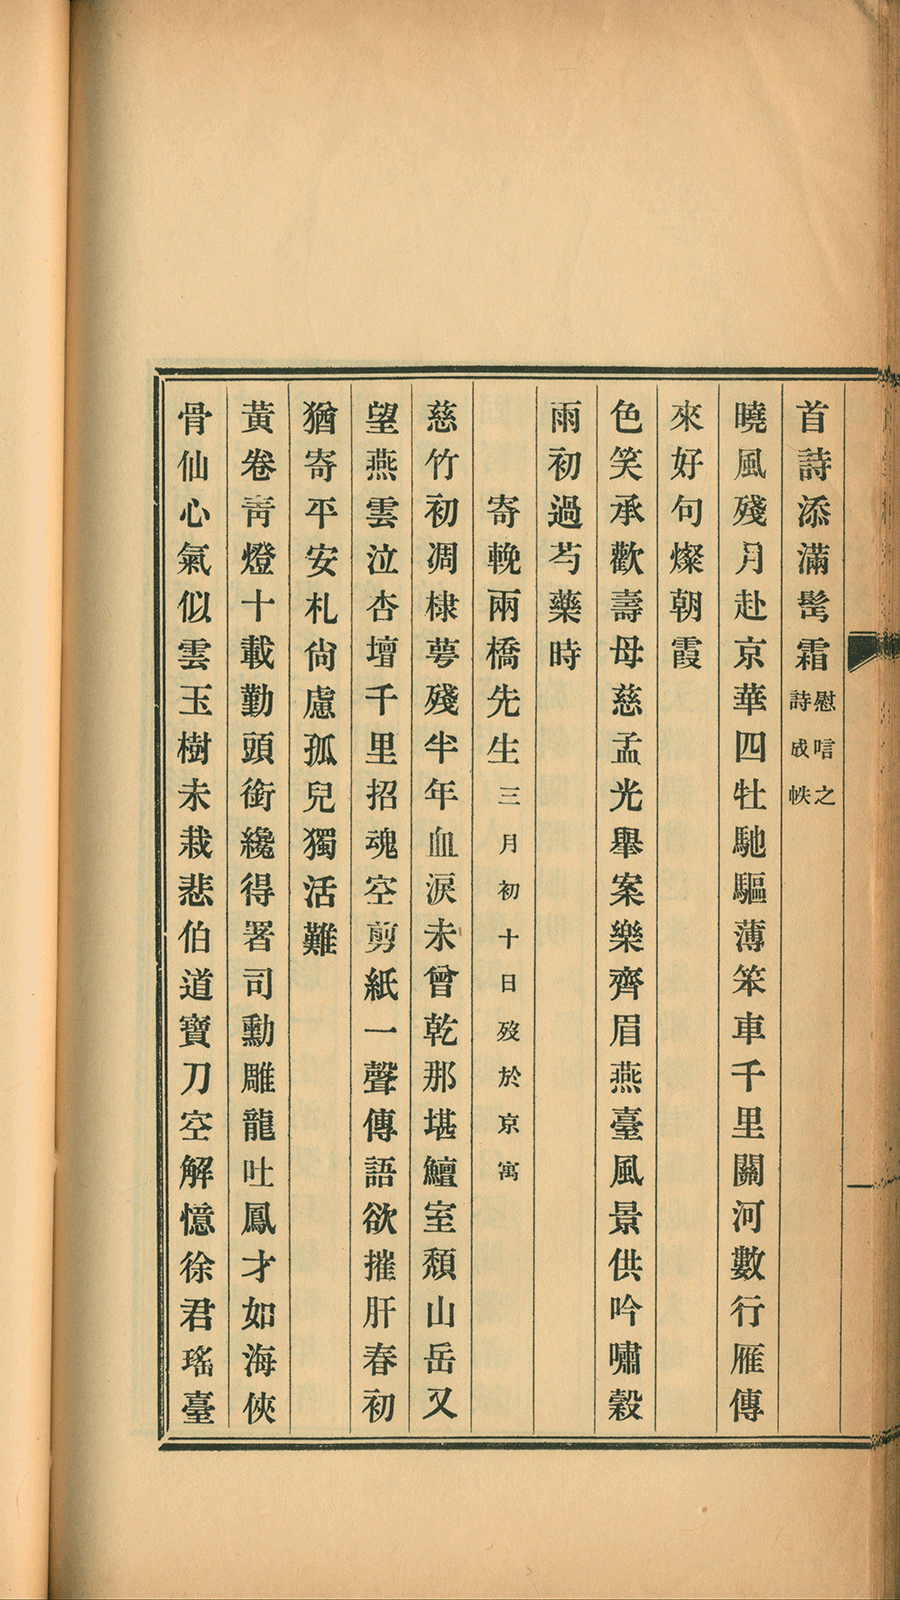 首詩添滿髩霜慰唁之詩成帙
曉風殘月赴京華四牡馳驅薄笨車千里關河數行雁傳
來好句燦朝霞
色笑承歡壽母慈孟光舉案樂齊眉燕臺風景供吟嘯縠
雨初過芍藥時
寄輓兩橋先生三月初十日歿於京寓
慈竹初凋棣萼殘半年血淚未曾乾那堪鱣室頹山岳又
望燕雲泣杏壇千里招魂空剪紙一聲傳語欲摧肝春初
猶寄平安札尙慮孤兒獨活難
黃卷靑燈十載勤頭銜纔得署司勳雕龍吐鳳才如海俠
骨仙心氣似雲玉樹未栽悲伯道寶刀空解憶徐君瑤臺